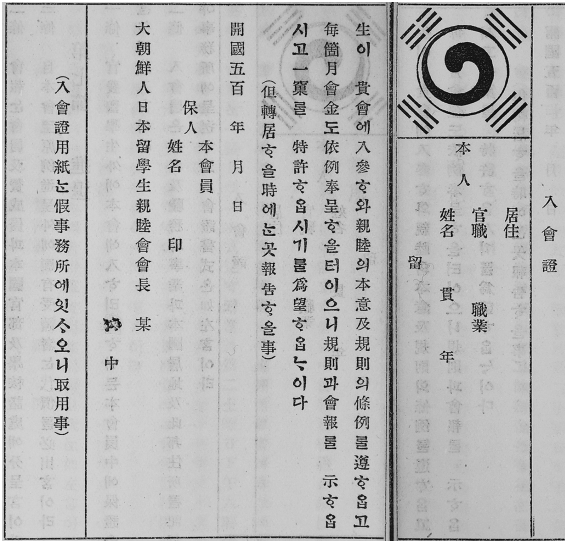 入會證
居住
官職 職業
本人
姓名 貫 年
留
生이 貴會에入參ᄒᆞ와親睦의本意及規則의條例를遵ᄒᆞ옵고
每箇月會金도依例奉呈ᄒᆞ을터이으니規則과會報를 示ᄒᆞ옵
시고一窠를 特許ᄒᆞ옵시기를爲望ᄒᆞ옵ᄂᆞ이다
(但轉居ᄒᆞ을時에ᄂᆞᆫ곳報告ᄒᆞ을事)
開國五百 年 月 日
本會員
保人
姓名 印
大朝鮮人日本留學生親睦會會長 某
中
(入會證用紙ᄂᆞᆫ假事務所에잇ᄉᆞ오니取用事)